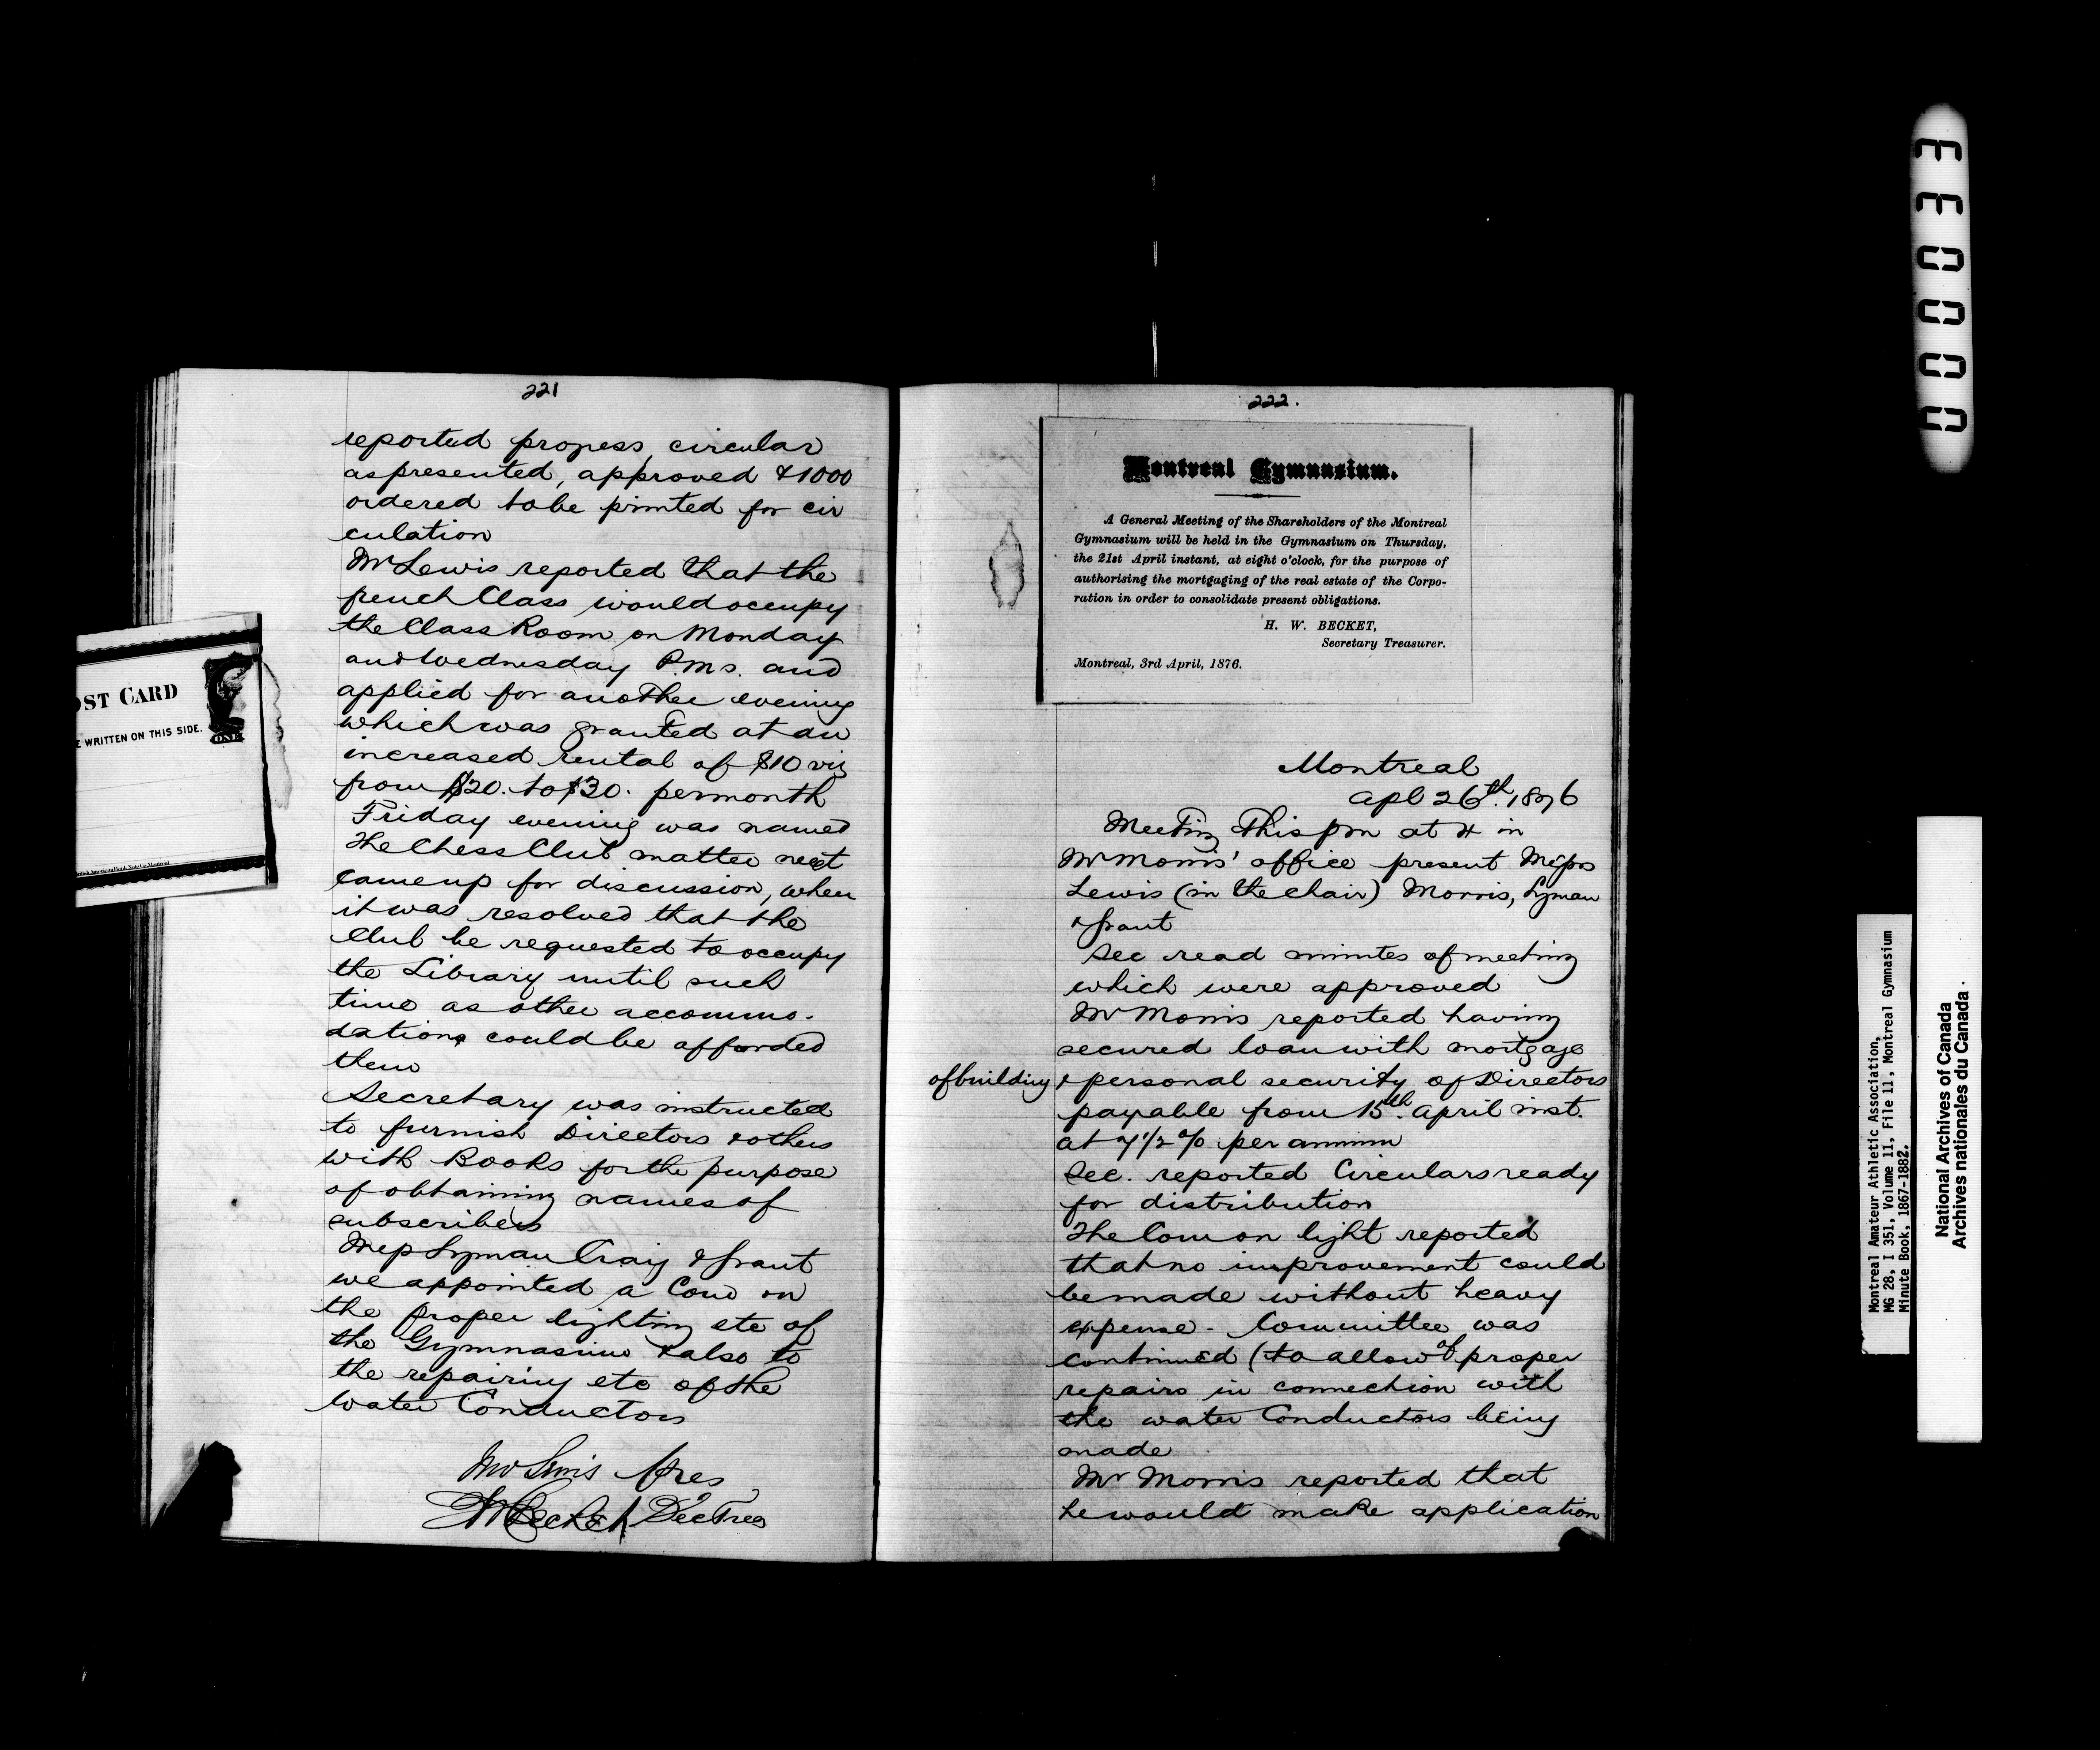 221
reported progress, circular
as presented, approved & 1000
ordered to be printed for cir
culation
Mr Lewis reported that the
french Class would occupy
the Class Room on Monday
and Wednesday P.Ms. and
applied for another evening
which was granted at an
increased rental of $10 viz
from $20. to $30. per month
Friday evening was named
The Chess Club matter next
came up for discussion, when
it was resolved that the
Club be requested to occupy
the Library until such
time as other accommo-
dations could be afforded
them
Secretary was instructed
to furnish Directors & others
with Books for the purpose
of obtaining names of
subscribers
Mess Lyman Craig & Grant
we appointed a Com on
the proper lighting etc of
the Gymnasium & also to
the repairing etc of the
water Conductors
Lewis Pres
HWBecket SecTres
OST CARD
E WRITTEN ON THIS SIDE.
ONE
222.
Montreal Gymnasium.
A General Meeting of the Shareholders of the Montreal
Gymnasium will be held in the Gymnasium on Thursday,
the 21st April instant, at eight o'clock, for the purpose of
authorising the mortgaging of the real estate of the Corpo-
ration in order to consolidate present obligations.
H. W. BECKET,
Secretary Treasurer.
Montreal, 3rd April, 1876.
Montreal
Apl 26th. 1876
Meeting this pm at 4 in
Mr Morris' office present Messrs
Lewis (in the chair) Morris, Lyman
& Grant
Sec read minutes of meeting
which were approved
Mr Morris reported having
secured loan with mortgage
of building & personal security of Directors
payable from 15th. April inst.
at 7 1/2 % per annum
Sec. reported Circulars ready
for distribution
The Com on light reported
that no improvement could
be made without heavy
expense - Committee was
continued (to allow of proper
repairs in connection with
the water Conductors being
made
Mr Morris reported that
he would make application
Montreal Amateur Athletic Association,
MG 28, I 351, Volume 11, File 11, Montreal Gymnasium
Minute Book, 1867-1882.
National Archives of Canada
Archives nationales du Canada